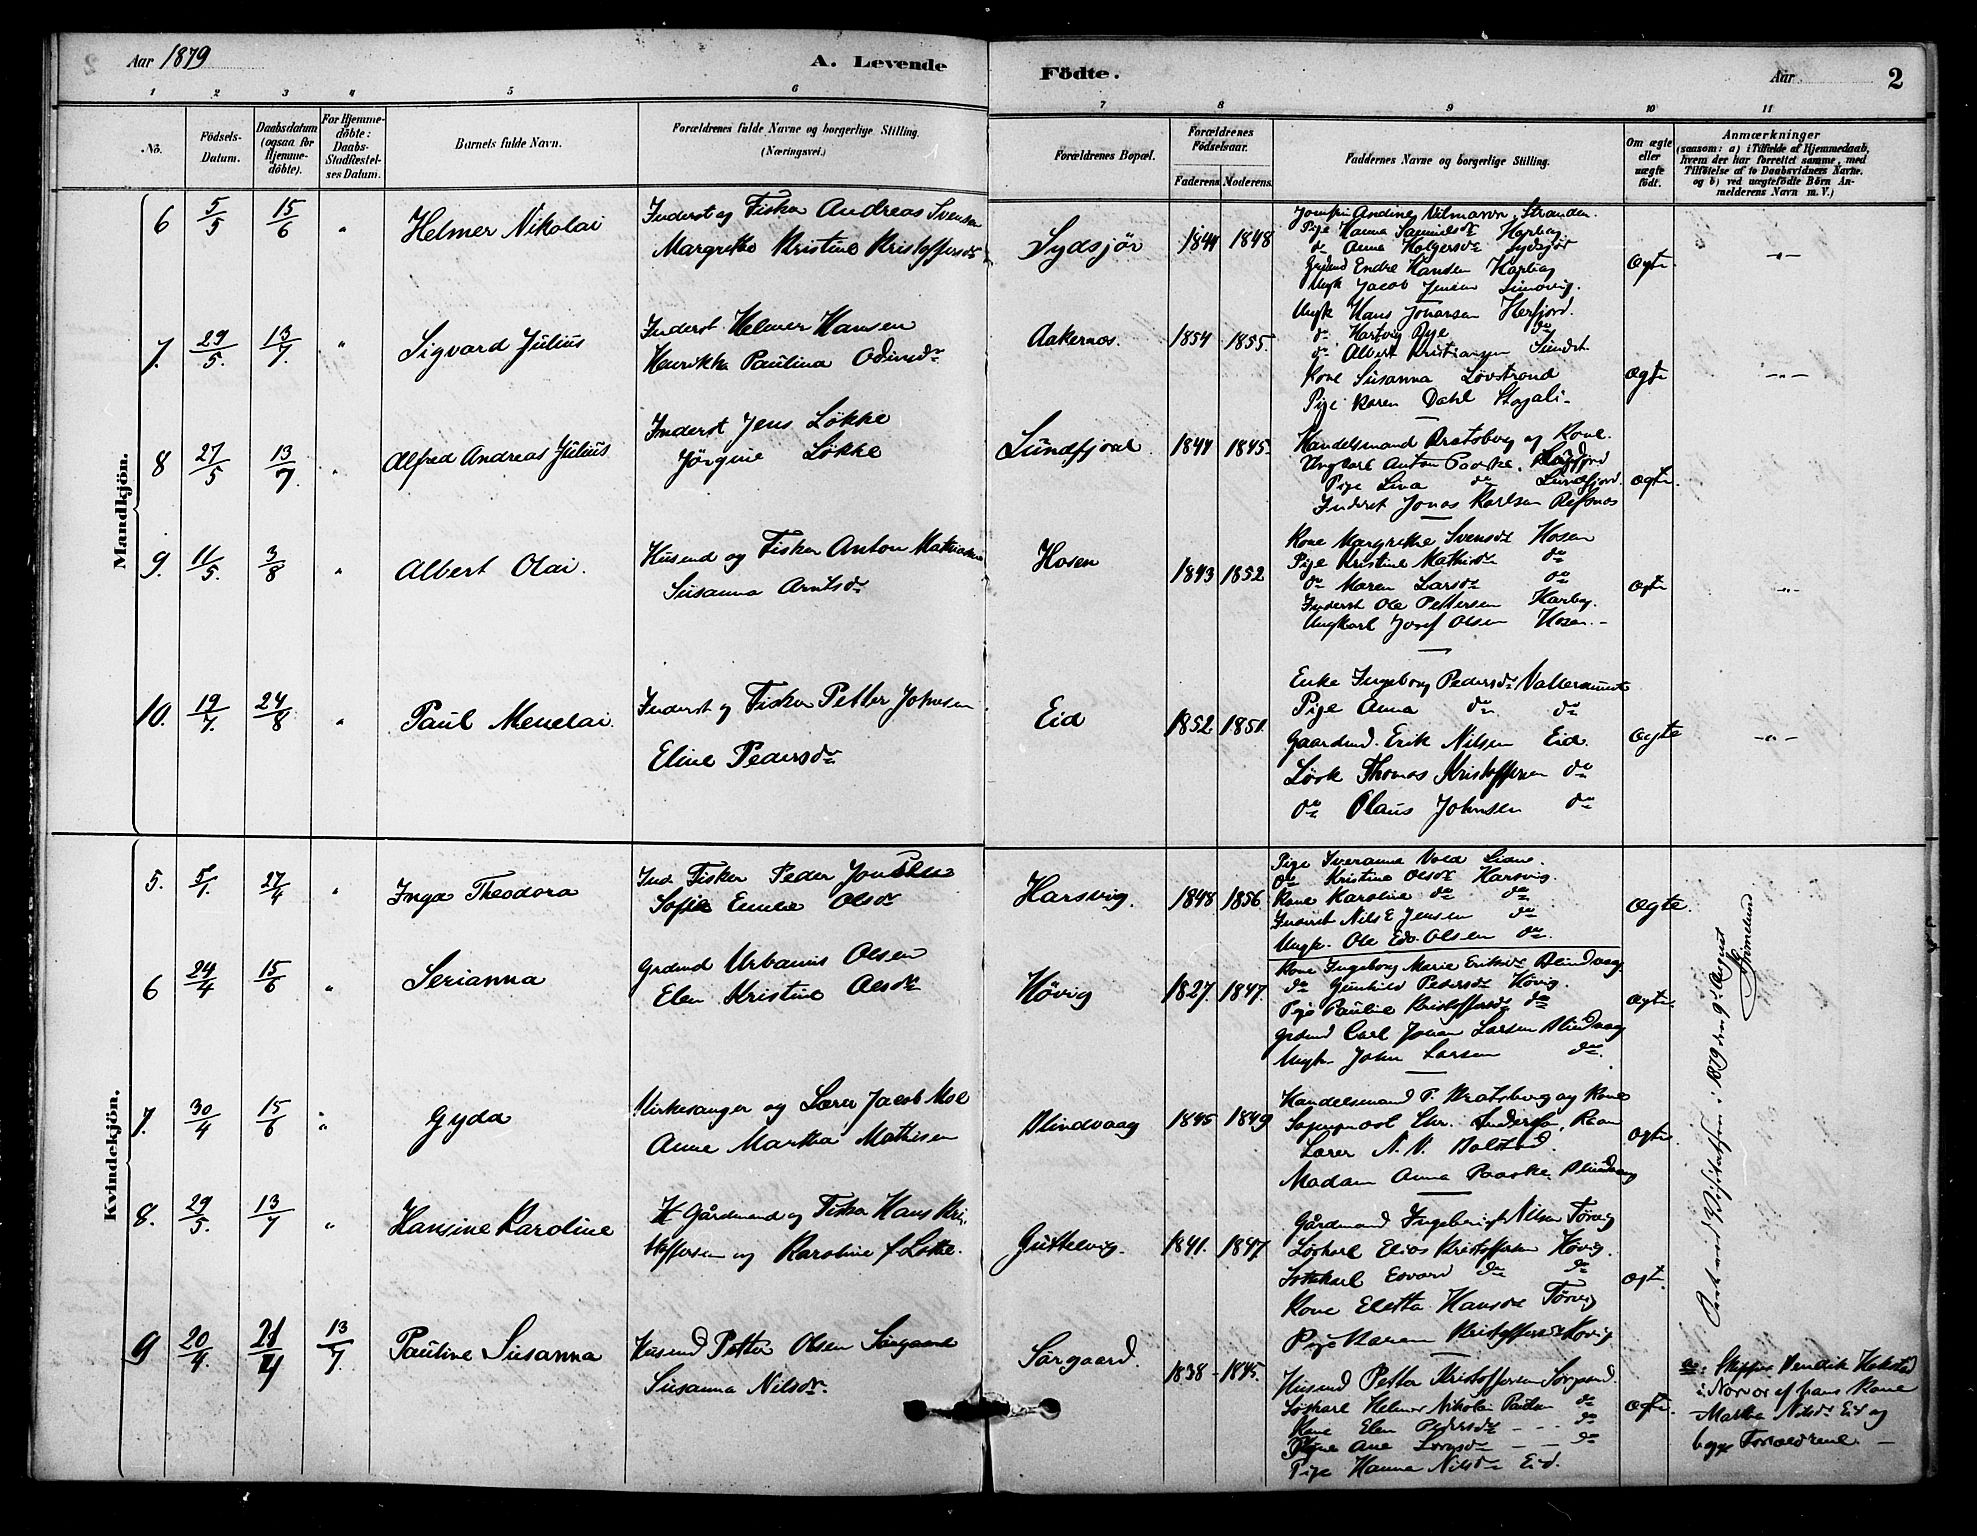 Aar 1879
A. Levende
Födte.
Aar
2
1 2 3 4 5 6 7 8 9 10 11
No.
Födsels-Datum.
Daabsdatum (ogsaa for Hjemme-döbte).
For Hjemme-döbte: Daabs-Stadfæstel-ses Datum.
Barnets fulde Navn.
Forældrenes fulde Navne og borgerlige Stilling.
(Næringsvei.)
Forældrenes Bopæl.
Forældrenes Födselsaar.
Faderens. Moderens.
Faddernes Navne og borgerlige Stilling.
Om ægte eller uægte födt.
Anmærkninger
(saasom: a) i Tilfælde af Hjemmedaab,
hvem der har forrettet samme, med
Tilföielse af to Daabsvidners Navne.
og b) ved uægtefödte Börn An-
melderens Navn m. V.)
Mandkjön.
6 5/5 15/6 " Helmer Nikolai
Inderst og Fisker Andreas Svensen
Margrethe Kristine Kristoffersdr
Sydsjør 1844 1848
Jomfru Andine Vilmann, Stranden.
Pige Hanna Samuelsdr Harbag
do Anna Holgersdr Sydsjør
Grdmd Endre Hansen Harbag
Ungk Jacob Jensen
Ægte
-"-
7. 29/5. 13/7. " Sigvard Julius
Inderst Helmer Hansen
Henrikka Paulina Odinsdr
Aakernes. 1854 1855.
Ungk Hans Johansen Herfjord.
do Hartvig Øye do
do Albert Kristiansen Sundet
Kone Susanna Løvstrand
Pige Karen Dahl
Ægte
-"-
8 27/5 13/7. " Alfred Andreas Julius
Inderst Jens Løkke
Jørgine Løkke
Sundfjord. 1844 1845.
Handelsmand Kratsberg og Kone.
Ungkarl Anton Paaske,
Pige Lina do Sundfjord.
Inderst Jonas Karlsen Refsnes
Ægte.
9. 11/5. 3/8 " Albert Olai.
Husmd og Fisker Anton Mathiasen
Susanna Arntsdr
Hosen 1843 1852
Kone Margrethe Svensdr Hosen
Pige Kristine Mathisdr do
do Maren Larsdr do
Inderst Ole Pettersen Harbag.
Ungkarl Josef Olsen Hosen.-
Ægte
-"-
10. 19/7. 24/8 " Paul Menelai.
Inderst og Fisker Petter Johnsen
Eline Pedersdr
Eid 1852 1851.
Enke Ingeborg Pedersdr Vallersund
Pige Anna do do
Gaardmd. Erik Nilsen Eid.
Løsk Thomas Kristoffersen do
do Olaus Johnsen do
Ægte
-"-
Kvindekjön.
5. 5/1. 27/4 " Inga Theodora
Ind Fisker Peder Jonsen
Sofie Emilie Olsdr
Harsvig. 1848 1856
Pige Sverianna Vold Lian.
do Kristine Olsdr Harsvig.
Kone Karoline do do
Inderst Nils E Jensen do
Ungk. Ole Edv. Olsen do.
Ægte.
6 24/4 15/6 " Serianna
Grdmd Urbanus Olsen
Elen Kristine Olsdr
Høvig 1827. 1847.
Kone Ingeborg Marie Eriksdr Blindvaag
do Gunhild Pedersdr Høvig.
Pige Pauline Kristoffersdr do
Grdmd Carl Johan Larsen Blindvaag
Ungk. John Larsen do.
Ægte.
7. 30/4 15/6 " Gyda
Kirkesanger og Lærer Jacob Moe
Anne Martha Mathisen
Blindvaag 1845 1849
Handelsmand P. Kratsberg og Kone
Chr.
Lærer N. N. Bolstad.
Madam Anna Paaske Blindvaag
Ægte
8. 29/5. 13/7 " Hansine Karoline
Gårdmand og Fisker Hans Kri-
stoffersen og Karoline f. Løkke.
Guttelvig. 1841. 1847.
Gårdmand Nilsen Tørvig
Løskarl Elias Kristoffersen Høvig.
Løskarl Edvard do do
Kone Eletta Hansdr Tørvig
Pige Karen Kristoffersdr Høvig
Ægt.
9 20/4. 21/4 13/7 Pauline Susanna
Husmd Petter Olsen Sørgaard
Susanna Nilsdr.
Sørgaard. 1838 - 1845.
Husmd Petter Kristoffersen Sørgaard.
Løskarl Helmer Nikolai Paulsen do
Kone Elen Pedersdr - - do
Pige Ane Larsdr - - do
Pige Hanna Nilsdr Eid.
Ægte.
a: Skipper Hendrik Hakstad
i Nærvær af hans Kone
Martha Nilsdr Eid og
begge Forældrene. -
Visitatsen i 1879 den 9de August